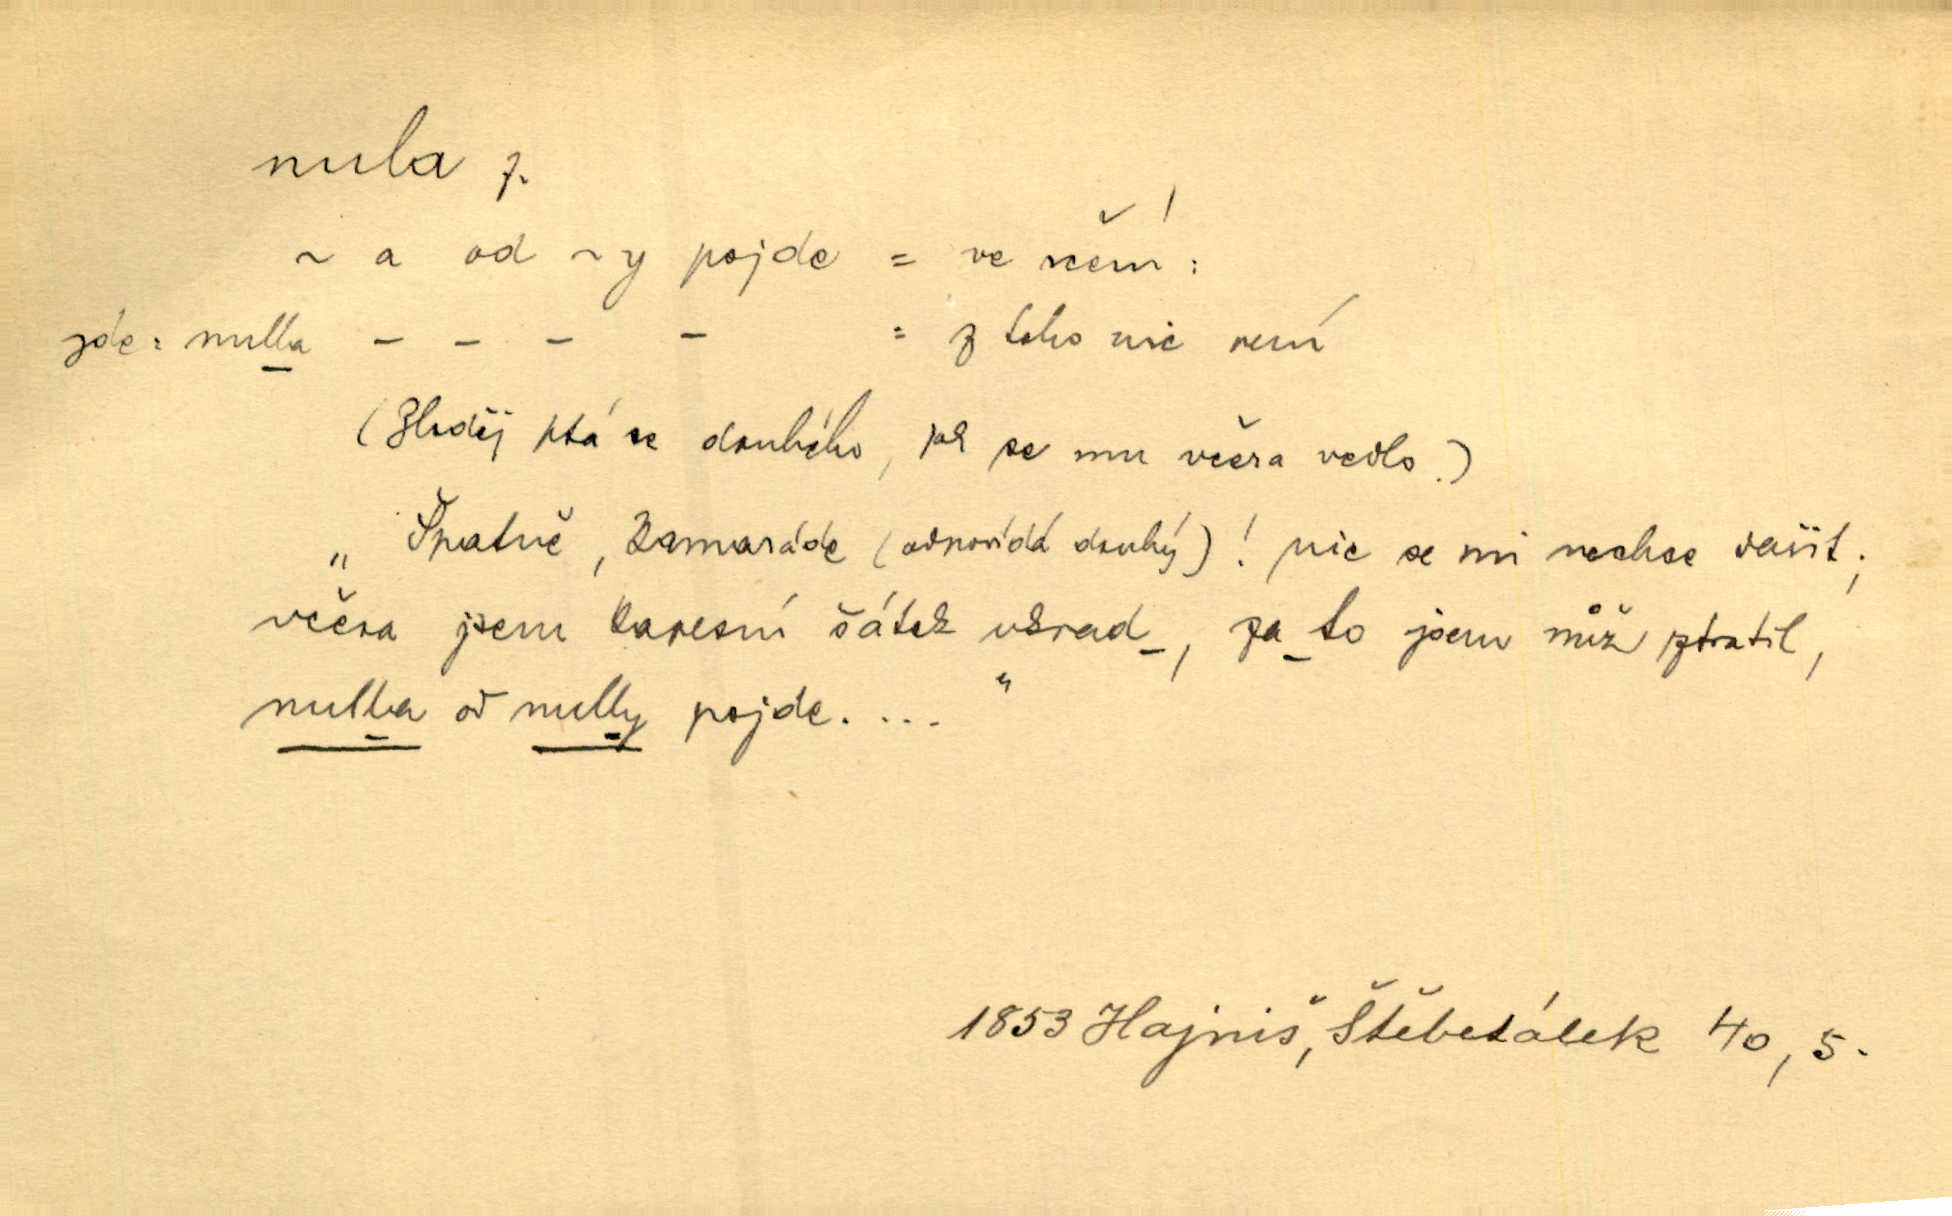 nula ž.
~ a od ~y pojde = ve rčení:
zde: nulla – – – – = z toho nic není
(Zloděj ptá se druhého, jak se mu včera vedlo.)
„Špatně, kamaráde (odpovídá druhý)! nic se mi nechce dařit;
včera jsem kapesní šátek ukrad, za to jsem nůž ztratil,
nulla od nully pojde. ..."
1853 Hajniš, Štěbetálek 40, 5.